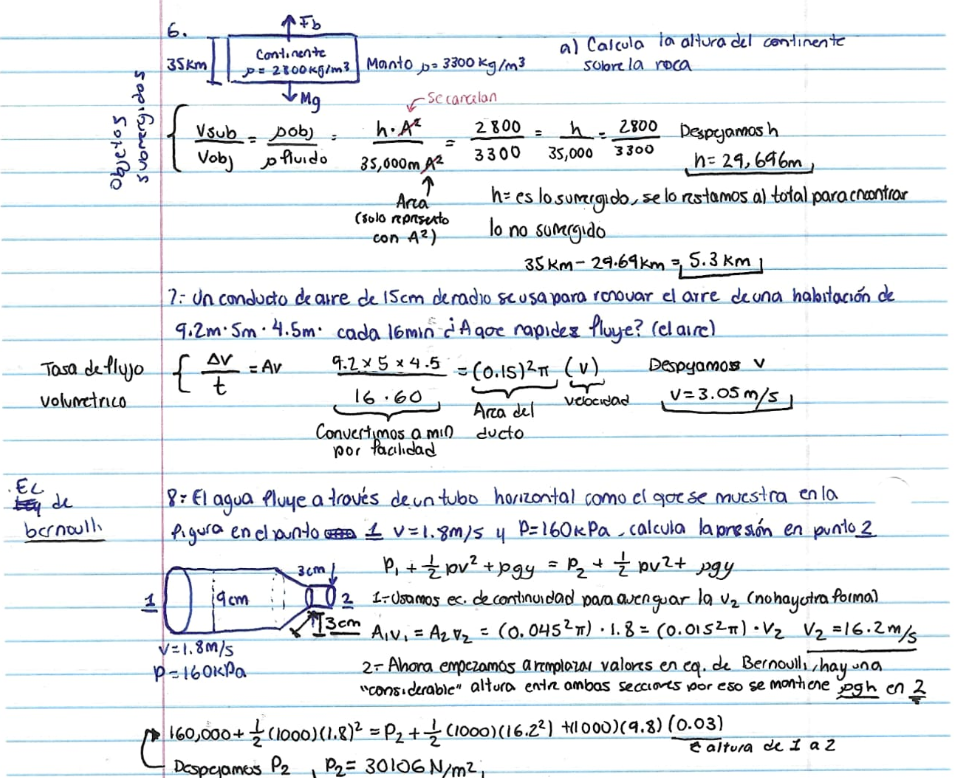 6.
Fb
35Km
Continente
ρ= 2800Kg/m³
Manto ρ= 3300 Kg/m³
Mg
a) Calcula la altura del continente
sobre la roca
Objetos
sumergidos
Se cancelan
Vsub/Vobj = ρobj/ρfluido = h·A²/35,000m A² = 2800/3300 = h/35,000 = 2800/3300 Despejamos h
h= 29,696m
Area
(solo represento
con A²)
h= es lo sumergido, se lo restamos al total para encontrar
lo no sumergido
35Km - 29.69Km = 5.3 Km
7= Un conducto de aire de 15cm de radio se usa para renovar el aire de una habitación de
9.2m · 5m · 4.5m · cada 16min ¿A que rapidez fluye? (el aire)
Tasa de flujo
volumetrico
ΔV/t = Av
9.2 × 5 × 4.5/16 · 60 = (0.15)²π (v) Despejamos v
v= 3.05 m/s
Convertimos a min
por facilidad
Area del
ducto
velocidad
Ec
de
bernoulli
8= El agua fluye a través de un tubo horizontal como el que se muestra en la
figura en el punto 1 v= 1.8m/s y P=160KPa, calcula la presión en punto 2
P₁ + ½ρv² + ρgy = P₂ + ½ρv² + ρgy
3cm
1
9cm
2
3cm
v=1.8m/s
P=160KPa
1= Usamos ec. de continuidad para averiguar la v₂ (no hay otra forma)
A₁v₁ = A₂v₂ = (0.045²π) · 1.8 = (0.015²π) · V₂ V₂ = 16.2 m/s
2= Ahora empezamos a remplazar valores en eq. de Bernoulli, hay una
"considerable" altura entre ambas secciones por eso se mantiene ρgh en 2
160,000 + ½(1000)(1.8)² = P₂ + ½(1000)(16.2²) + (1000)(9.8)(0.03)
altura de 1 a 2
Despejamos P₂, P₂= 30106 N/m²